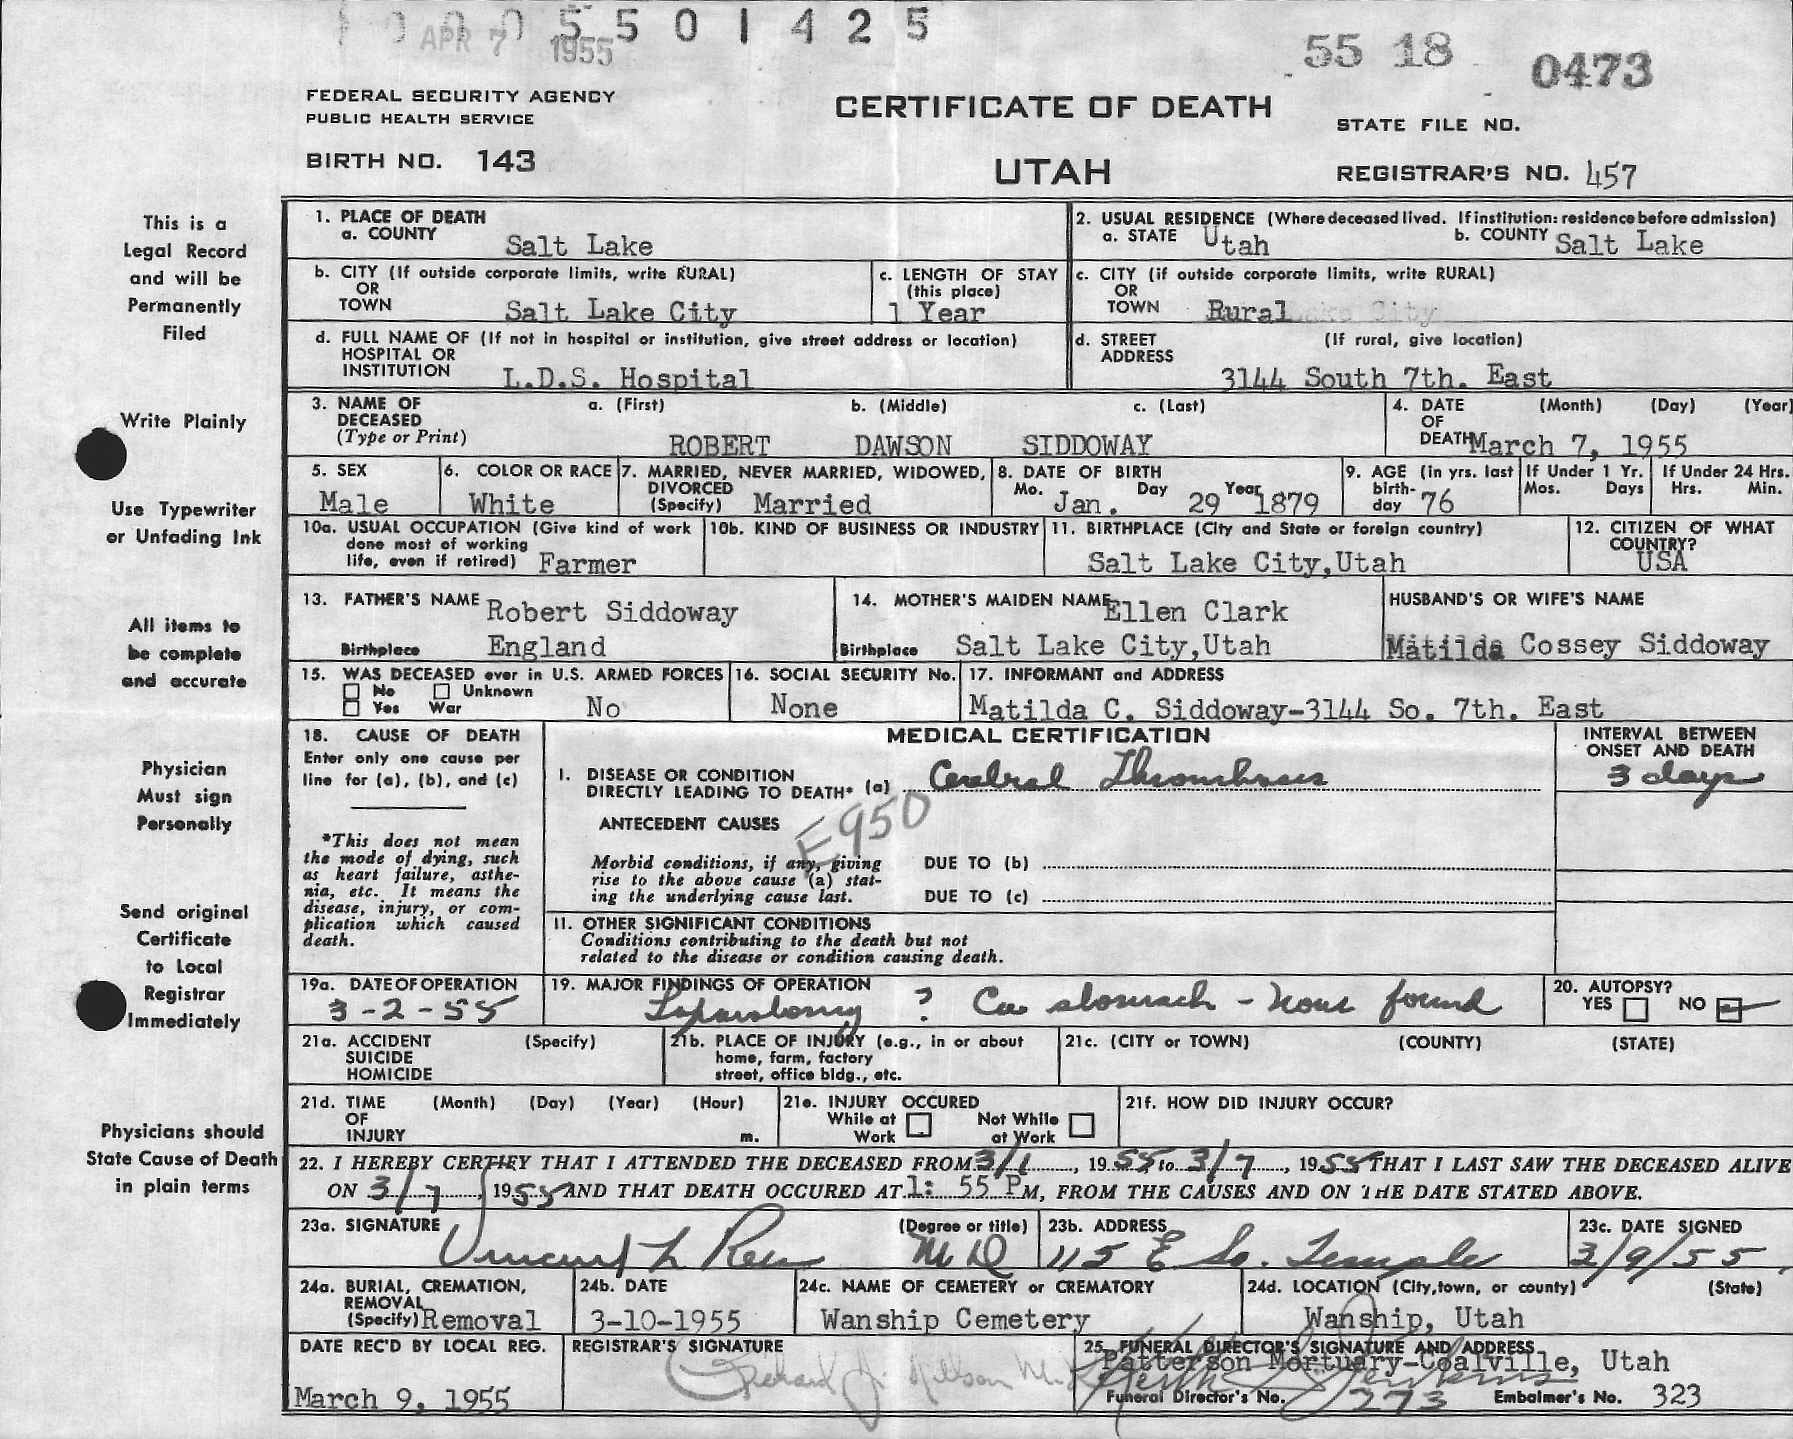 5 5 0 1 4 2 5
APR 7 1955
55 18 0473
FEDERAL SECURITY AGENCY
PUBLIC HEALTH SERVICE
CERTIFICATE OF DEATH
STATE FILE NO.
BIRTH NO. 143
UTAH
REGISTRAR'S NO. 457
This is a
Legal Record
and will be
Permanently
Filed
Write Plainly
Use Typewriter
or Unfading Ink
All items to
be complete
and accurate
Physician
Must sign
Personally
Send original
Certificate
to Local
Registrar
Immediately
Physicians should
State Cause of Death
in plain terms
1. PLACE OF DEATH
a. COUNTY Salt Lake
2. USUAL RESIDENCE (Where deceased lived. If institution: residence before admission)
a. STATE Utah b. COUNTY Salt Lake
b. CITY (If outside corporate limits, write RURAL)
OR
TOWN Salt Lake City
c. LENGTH OF STAY
(this place)
1 Year
c. CITY (if outside corporate limits, write RURAL)
OR
TOWN Rural
d. FULL NAME OF (If not in hospital or institution, give street address or location)
HOSPITAL OR
INSTITUTION L.D.S. Hospital
d. STREET (If rural, give location)
ADDRESS
3144 South 7th. East
3. NAME OF a. (First) b. (Middle) c. (Last)
DECEASED
(Type or Print) ROBERT DAWSON SIDDOWAY
4. DATE (Month) (Day) (Year)
OF
DEATH March 7, 1955
5. SEX
Male
6. COLOR OR RACE
White
7. MARRIED, NEVER MARRIED, WIDOWED,
DIVORCED
(Specify) Married
8. DATE OF BIRTH
Mo. Day Year
Jan. 29 1879
9. AGE (in yrs. last
birth-
day 76
If Under 1 Yr.
Mos. Days
If Under 24 Hrs.
Hrs. Min.
10a. USUAL OCCUPATION (Give kind of work
done most of working
life, even if retired) Farmer
10b. KIND OF BUSINESS OR INDUSTRY
11. BIRTHPLACE (City and State or foreign country)
Salt Lake City,Utah
12. CITIZEN OF WHAT
COUNTRY?
USA
13. FATHER'S NAME Robert Siddoway
Birthplace England
14. MOTHER'S MAIDEN NAME Ellen Clark
Birthplace Salt Lake City,Utah
HUSBAND'S OR WIFE'S NAME
Matilda Cossey Siddoway
15. WAS DECEASED ever in U.S. ARMED FORCES
No Unknown
Yes War No
16. SOCIAL SECURITY No.
None
17. INFORMANT and ADDRESS
Matilda C. Siddoway-3144 So. 7th. East
18. CAUSE OF DEATH
Enter only one cause per
line for (a), (b), and (c)
*This does not mean
the mode of dying, such
as heart failure, asthe-
nia, etc. It means the
disease, injury, or com-
plication which caused
death.
MEDICAL CERTIFICATION
I. DISEASE OR CONDITION
DIRECTLY LEADING TO DEATH* (a) Cerebral Thrombosis
E950
ANTECEDENT CAUSES
Morbid conditions, if any, giving
rise to the above cause (a) stat-
ing the underlying cause last.
DUE TO (b)
DUE TO (c)
II. OTHER SIGNIFICANT CONDITIONS
Conditions contributing to the death but not
related to the disease or condition causing death.
INTERVAL BETWEEN
ONSET AND DEATH
3 days
19a. DATE OF OPERATION
3-2-55
19. MAJOR FINDINGS OF OPERATION
Laparotomy ? Ca stomach - none found
20. AUTOPSY?
YES NO
21a. ACCIDENT (Specify)
SUICIDE
HOMICIDE
21b. PLACE OF INJURY (e.g., in or about
home, farm, factory
street, office bldg., etc.
21c. (CITY or TOWN) (COUNTY) (STATE)
21d. TIME (Month) (Day) (Year) (Hour)
OF
INJURY m.
21e. INJURY OCCURED
While at Work Not While at Work
21f. HOW DID INJURY OCCUR?
22. I HEREBY CERTIFY THAT I ATTENDED THE DECEASED FROM 3/1, 1955 to 3/7, 1955 THAT I LAST SAW THE DECEASED ALIVE
ON 3/7, 1955 AND THAT DEATH OCCURED AT 1:55 P M, FROM THE CAUSES AND ON THE DATE STATED ABOVE.
23a. SIGNATURE (Degree or title)
Vincent L. Rees MD
23b. ADDRESS
115 E So. Temple
23c. DATE SIGNED
3/9/55
24a. BURIAL, CREMATION,
REMOVAL
(Specify) Removal
24b. DATE
3-10-1955
24c. NAME OF CEMETERY or CREMATORY
Wanship Cemetery
24d. LOCATION (City,town, or county) (State)
Wanship, Utah
DATE REC'D BY LOCAL REG.
March 9, 1955
REGISTRAR'S SIGNATURE
Richard J. Nelson M.
25. FUNERAL DIRECTOR'S SIGNATURE AND ADDRESS
Patterson Mortuary-Coalville, Utah
Funeral Director's No. 273 Embalmer's No. 323